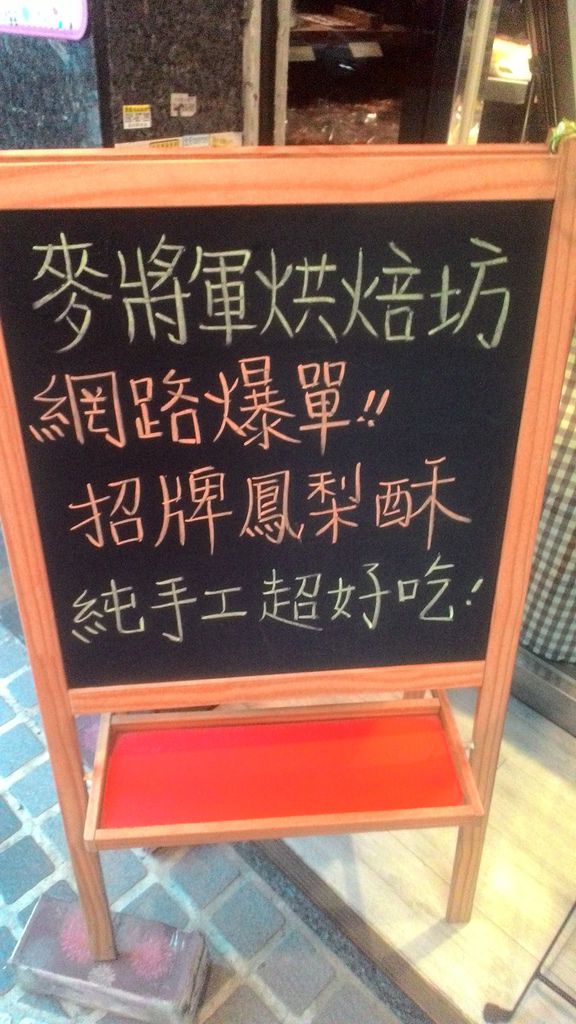 麥將軍烘焙坊
網路爆單!!
招牌鳳梨酥
純手工超好吃!